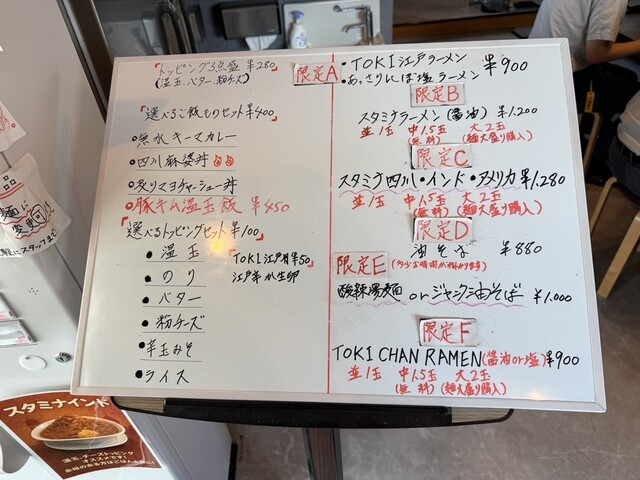 「トッピング3点盛 ¥280」
(温玉、バター、粉チーズ)
「選べるご飯ものセット¥400」
•無水キーマカレー
•四川麻婆丼
•炙りマヨチャーシュー丼
•豚キム温玉飯 ¥450
「選べるトッピングセット¥100」
•温玉
•のり
•バター
•粉チーズ
•辛玉みそ
•ライス
「TOKI江戸丼¥50」
限定A
•TOKI江戸ラーメン
•あっさりにぼ塩ラーメン
¥900
限定B
スタミナラーメン(醤油) ¥1.200
並1玉 中1.5玉 大2玉
(無料) (麺大盛り購入)
限定C
スタミナ四川•インド•アメリカ ¥1.280
並1玉 中1.5玉 大2玉
(無料) (麺大盛り購入)
限定D
油そば ¥880
限定E
(多少お時間がかかります)
酸辣湯麺 orジャンク油そば ¥1.000
限定F
TOKI CHAN RAMEN(醤油or塩)¥900
並1玉 中1.5玉 大2玉
(無料) (麺大盛り購入)
麺に
変更可
スタミナインド
温玉、チーズトッピング
オススメです!